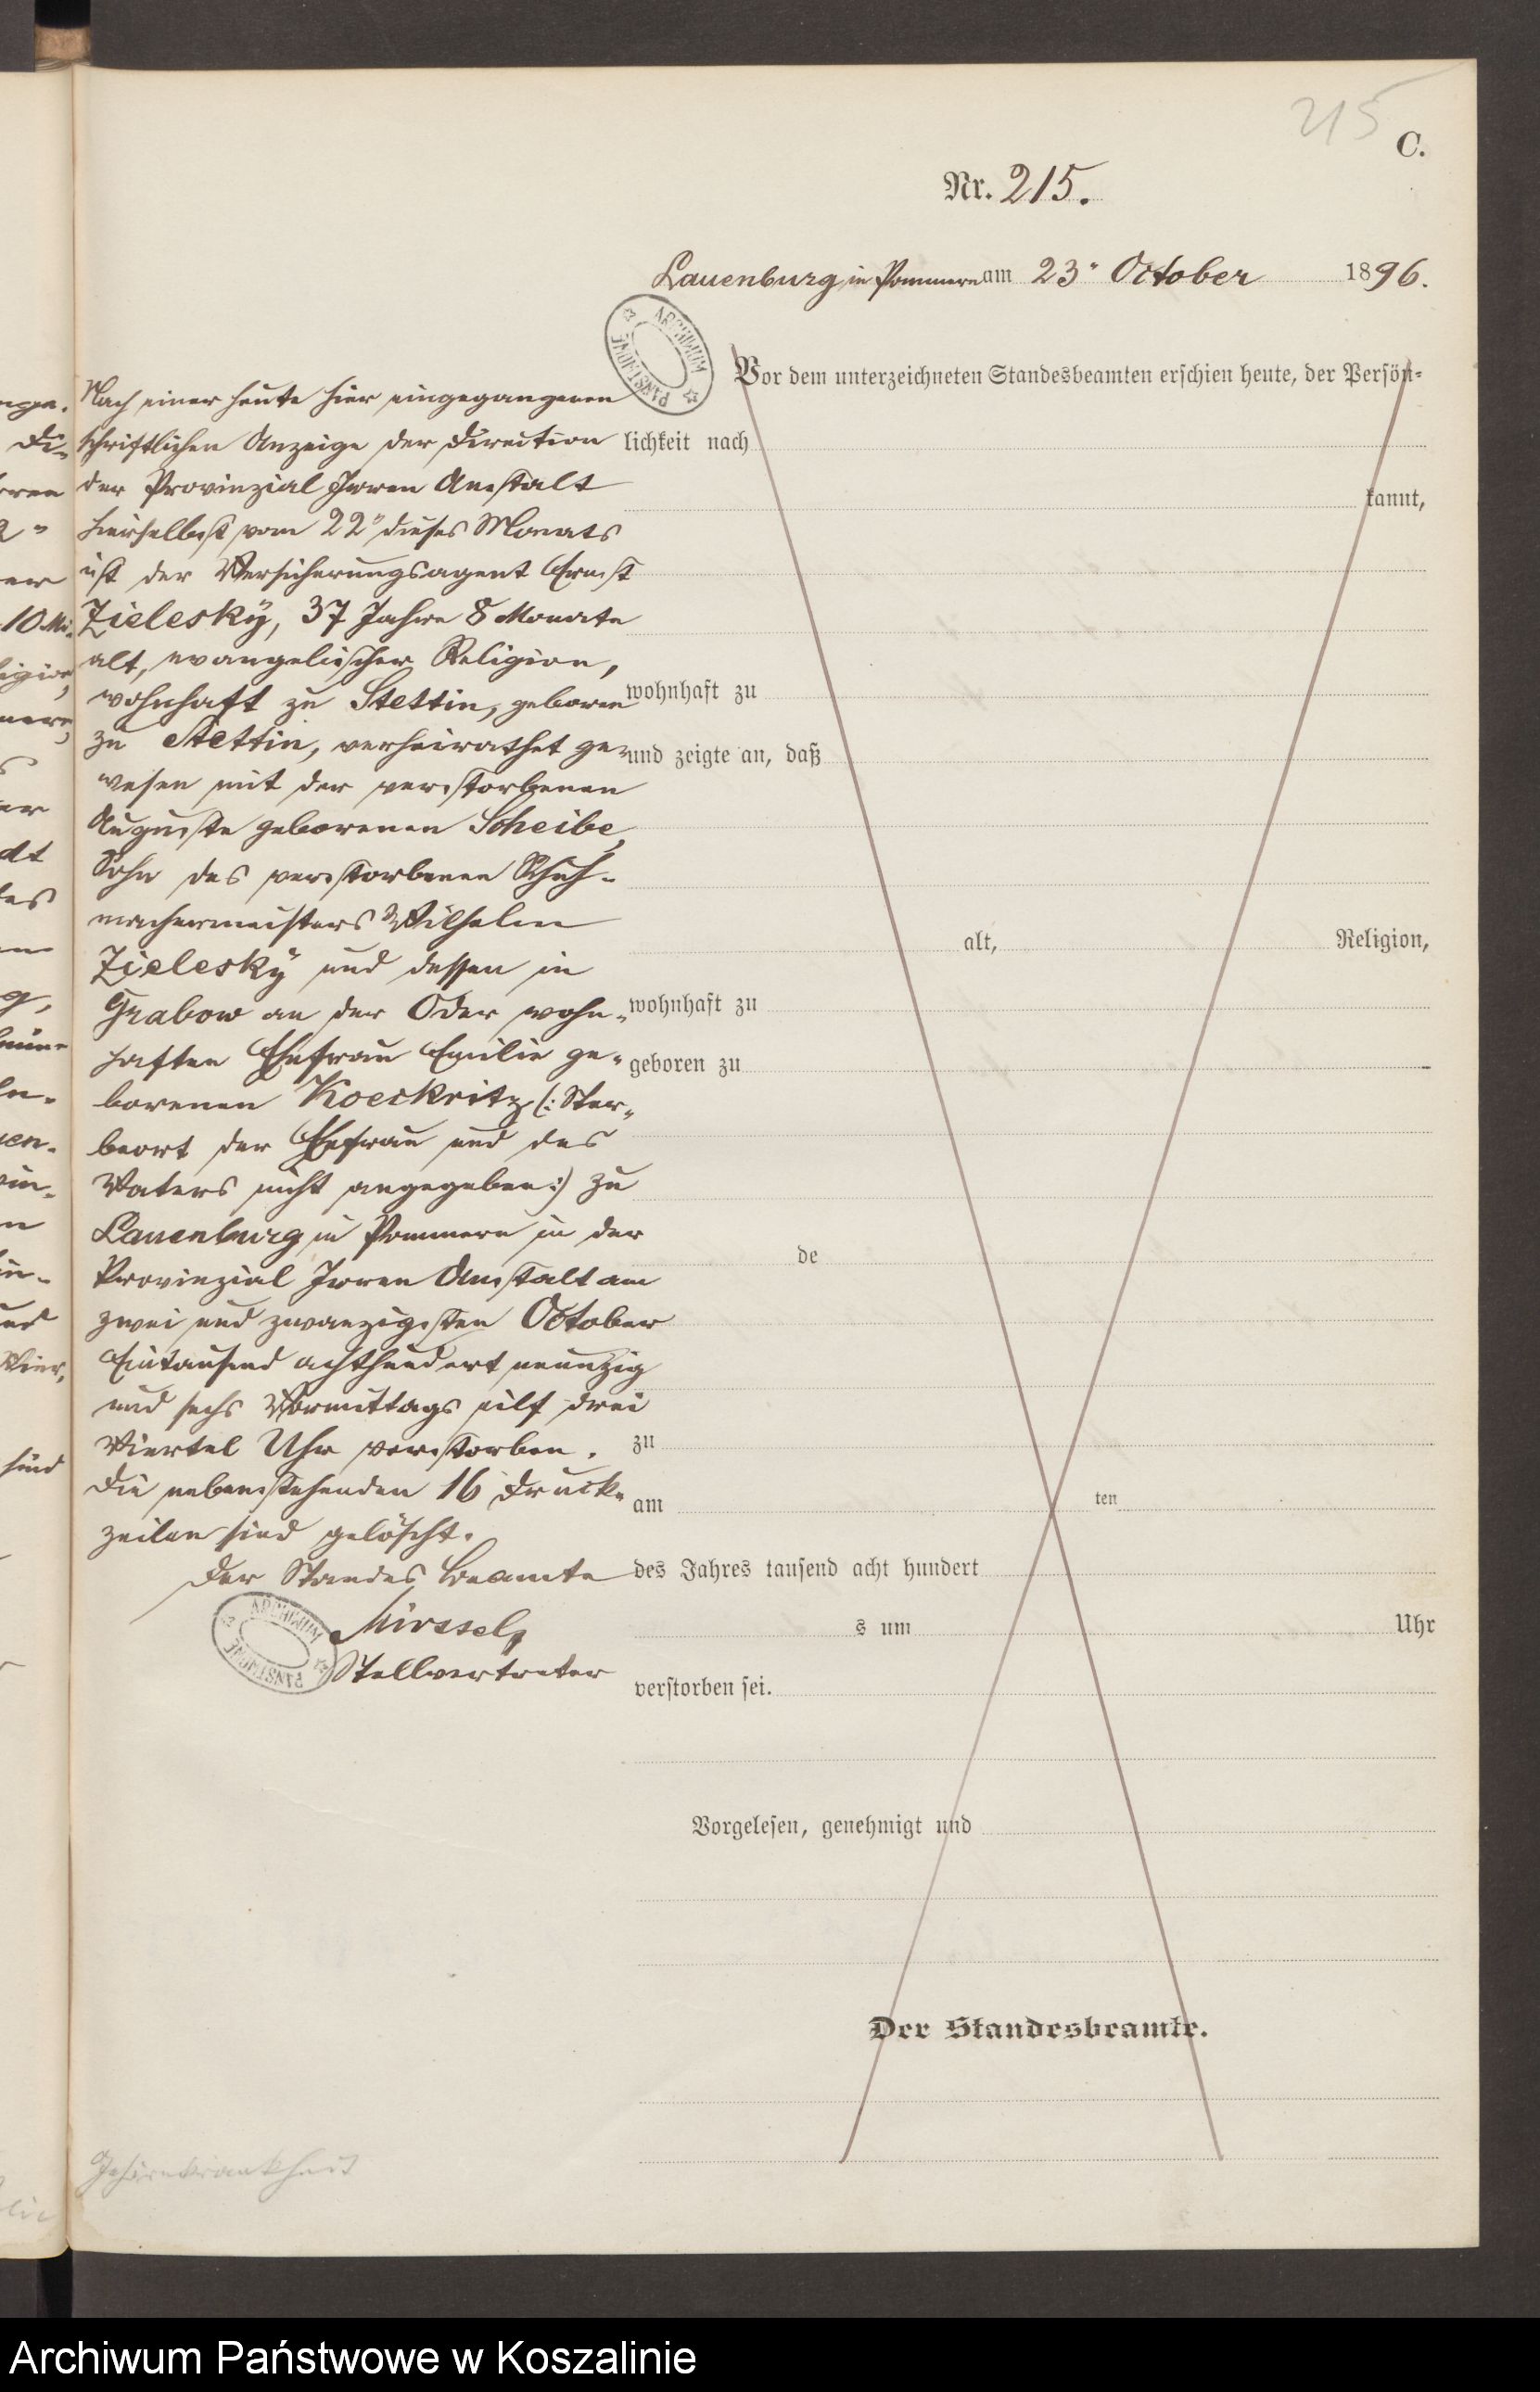 215
C.
Nr. 215.
Lauenburg in Pommern am 23" October 1896.
ARCHIWUM PAŃSTWOWE
Nach einer heute hier eingegangenen
schriftlichen Anzeige der Direction
der Provinzial Irren Anstalt
hierselbst vom 22" dieses Monats
ist der Versicherungsagent Ernst
Zieleskÿ, 37 Jahre 8 Monate
alt, evangelischer Religion,
wohnhaft zu Stettin, geboren
zu Stettin, verheirathet ge-
wesen mit der verstorbenen
Auguste geborenen Scheibe,
Sohn des verstorbenen Schuh-
machermeisters Wilhelm
Zieleskÿ und dessen in
Grabow an der Oder wohn-
haften Ehefrau Emilie ge-
borenen Koeckritz (: Ster-
beort der Ehefrau und des
Vaters nicht angegeben :) zu
Lauenburg in Pommern in der
Provinzial Irren Anstalt am
zwei und zwanzigsten October
Eintausend achthundert neunzig
und sechs Vormittags eilf drei
Viertel Uhr verstorben.
Die nebenstehenden 16 Druck-
zeilen sind gelöscht.
Der Standes Beamte
Stellvertreter
ARCHIWUM PAŃSTWOWE
Vor dem unterzeichneten Standesbeamten erschien heute, der Persön-
lichkeit nach
kannt,
wohnhaft zu
und zeigte an, daß
alt, Religion,
wohnhaft zu
geboren zu
de
zu
am ten
des Jahres tausend acht hundert
s um Uhr
verstorben sei.
Vorgelesen, genehmigt und
Der Standesbeamte.
Gehirnkrankheit
Archiwum Państwowe w Koszalinie